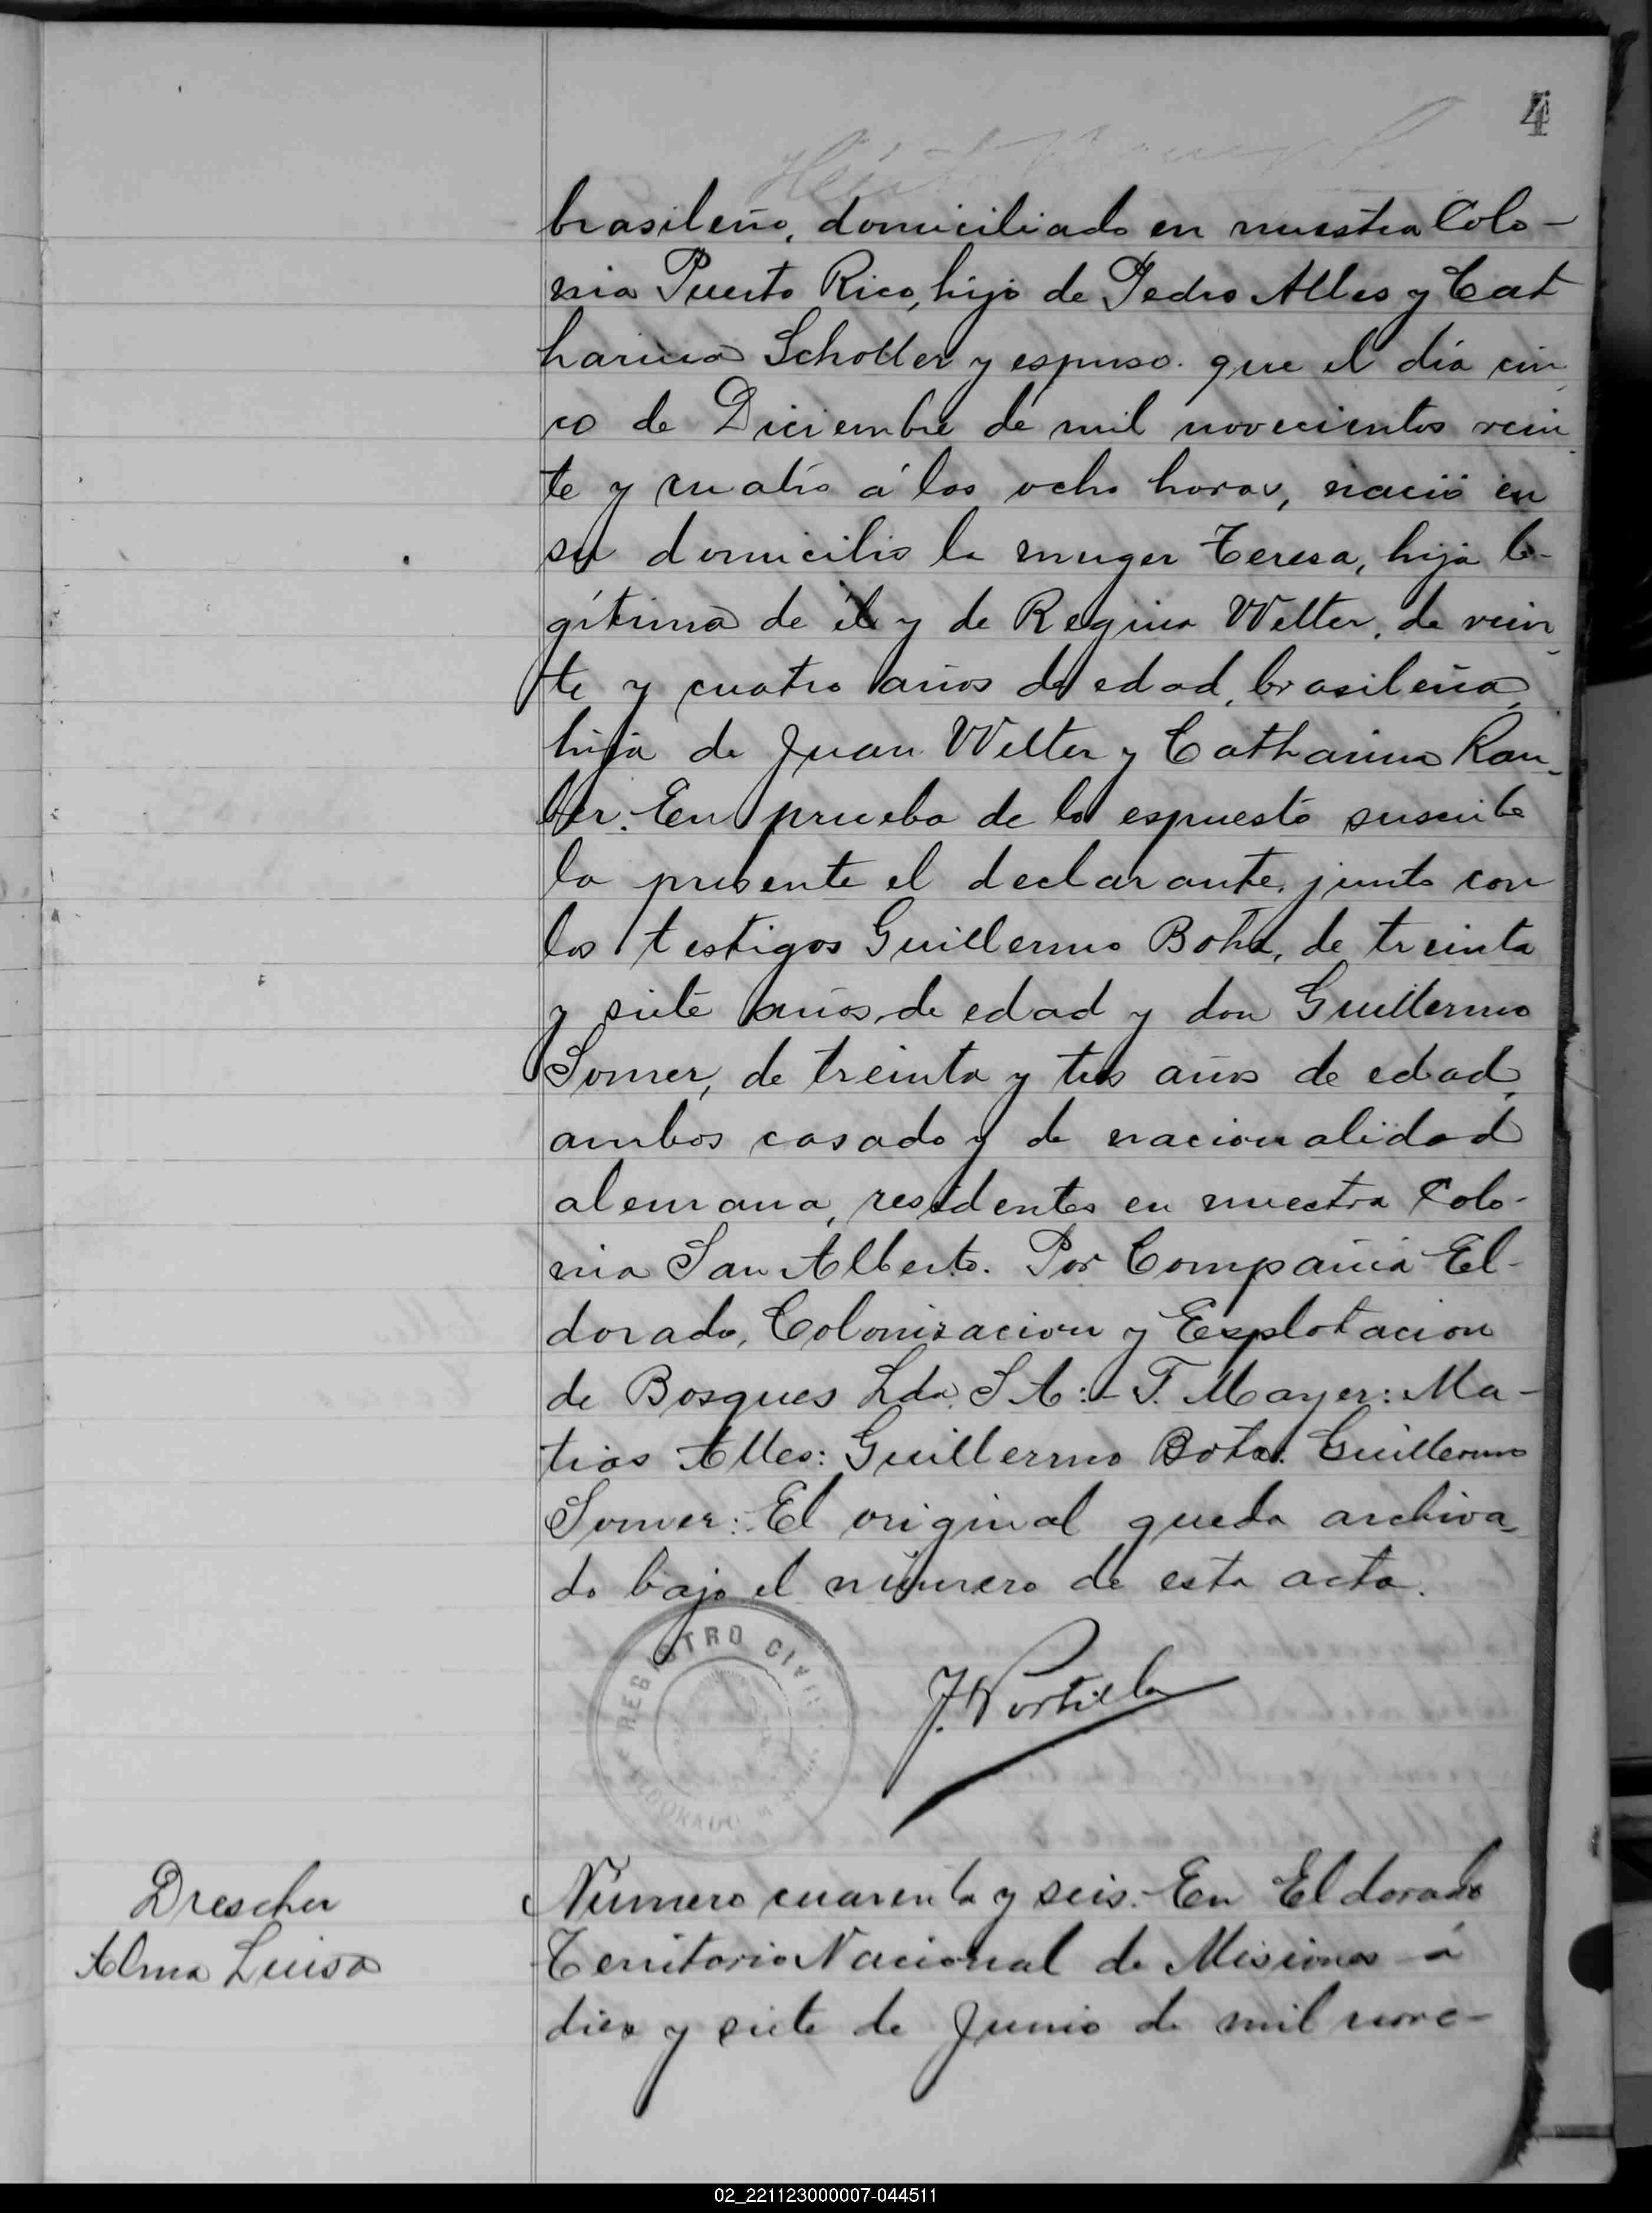 4
brasileño, domiciliado en nuestra Colo-
nia Puerto Rico, hijo de Pedro Alles y Cat
harina Scholler y espuso. que el día cin
co de Diciembre de mil novecientos vein
te y cuatro á las ocho horas, nació en
su domicilio la muger Teresa, hija le-
gítima de él y de Regina Welter, de vein
te y cuatro años de edad, brasileña,
hija de Juan Welter y Catharina Rau-
ber. En prueba de lo espuesto suscribe
la presente el declarante, junto con
los testigos Guillermo Bohz, de treinta
y siete años, de edad y don Guillermo
Somer, de treinta y tres años de edad,
ambos casado y de nacionalidad
alemana, residentes en nuestra Colo-
nia San Alberto. Por Compañia El-
dorado, Colonizacion y Explotacion
de Bosques Lda. S A:- F. Mayer: Ma-
tias Alles: Guillermo Bota. Guillermo
Somer:- El original queda archiva-
do bajo el número de esta acta.
REGISTRO CIVIL
ELDORADO
J. Portilla
Drescher
Alma Luisa
Número cuarenta y seis.- En Eldorado
Territorio Nacional de Misiones á
diez y siete de Junio de mil nove-
02_221123000007-044511